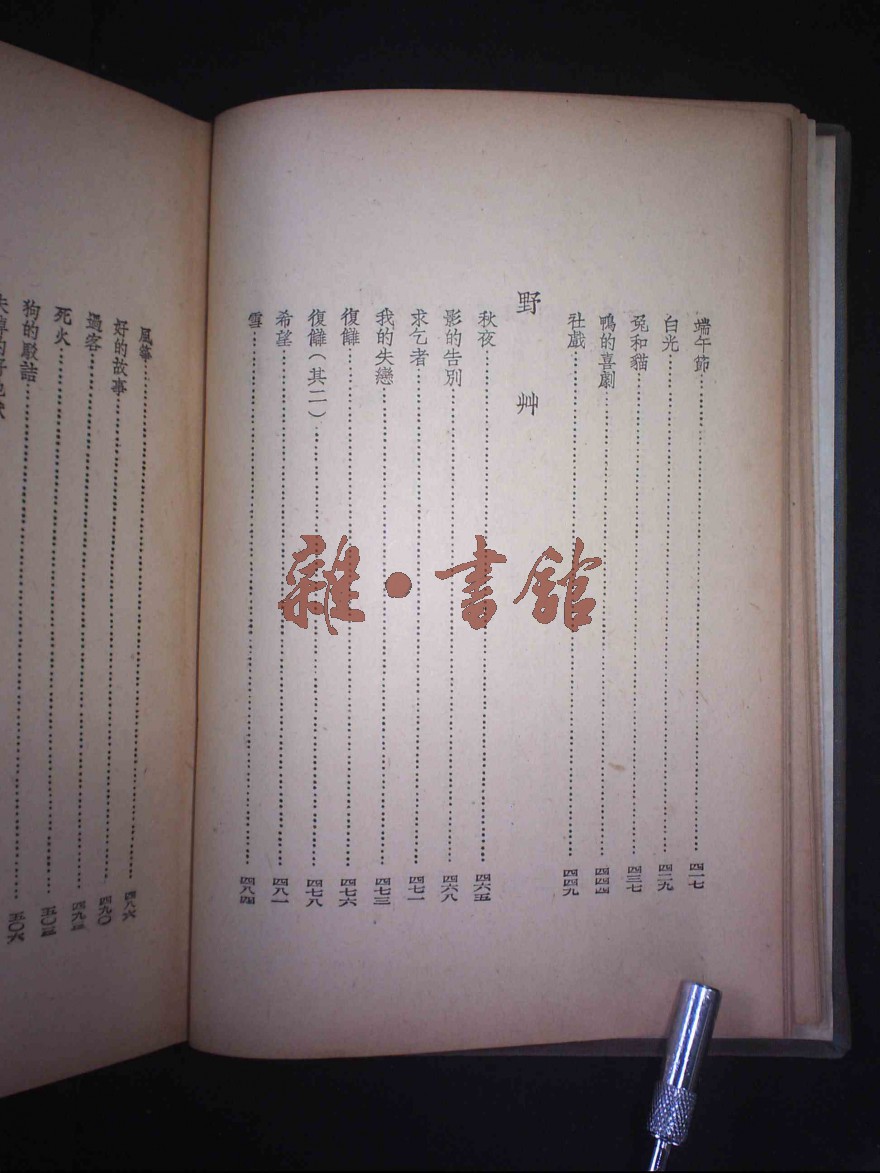 端午節……四一七
白光……四二九
兔和貓……四三七
鴨的喜劇……四四四
社戲……四四九
野艸
秋夜……四六五
影的告別……四六八
求乞者……四七一
我的失戀……四七三
復讎……四七六
復讎（其二）……四七八
希望……四八一
雪……四八四
風箏……四八六
好的故事……四九〇
過客……四九三
死火……五〇三
狗的駁詰……五〇六
雜·書館